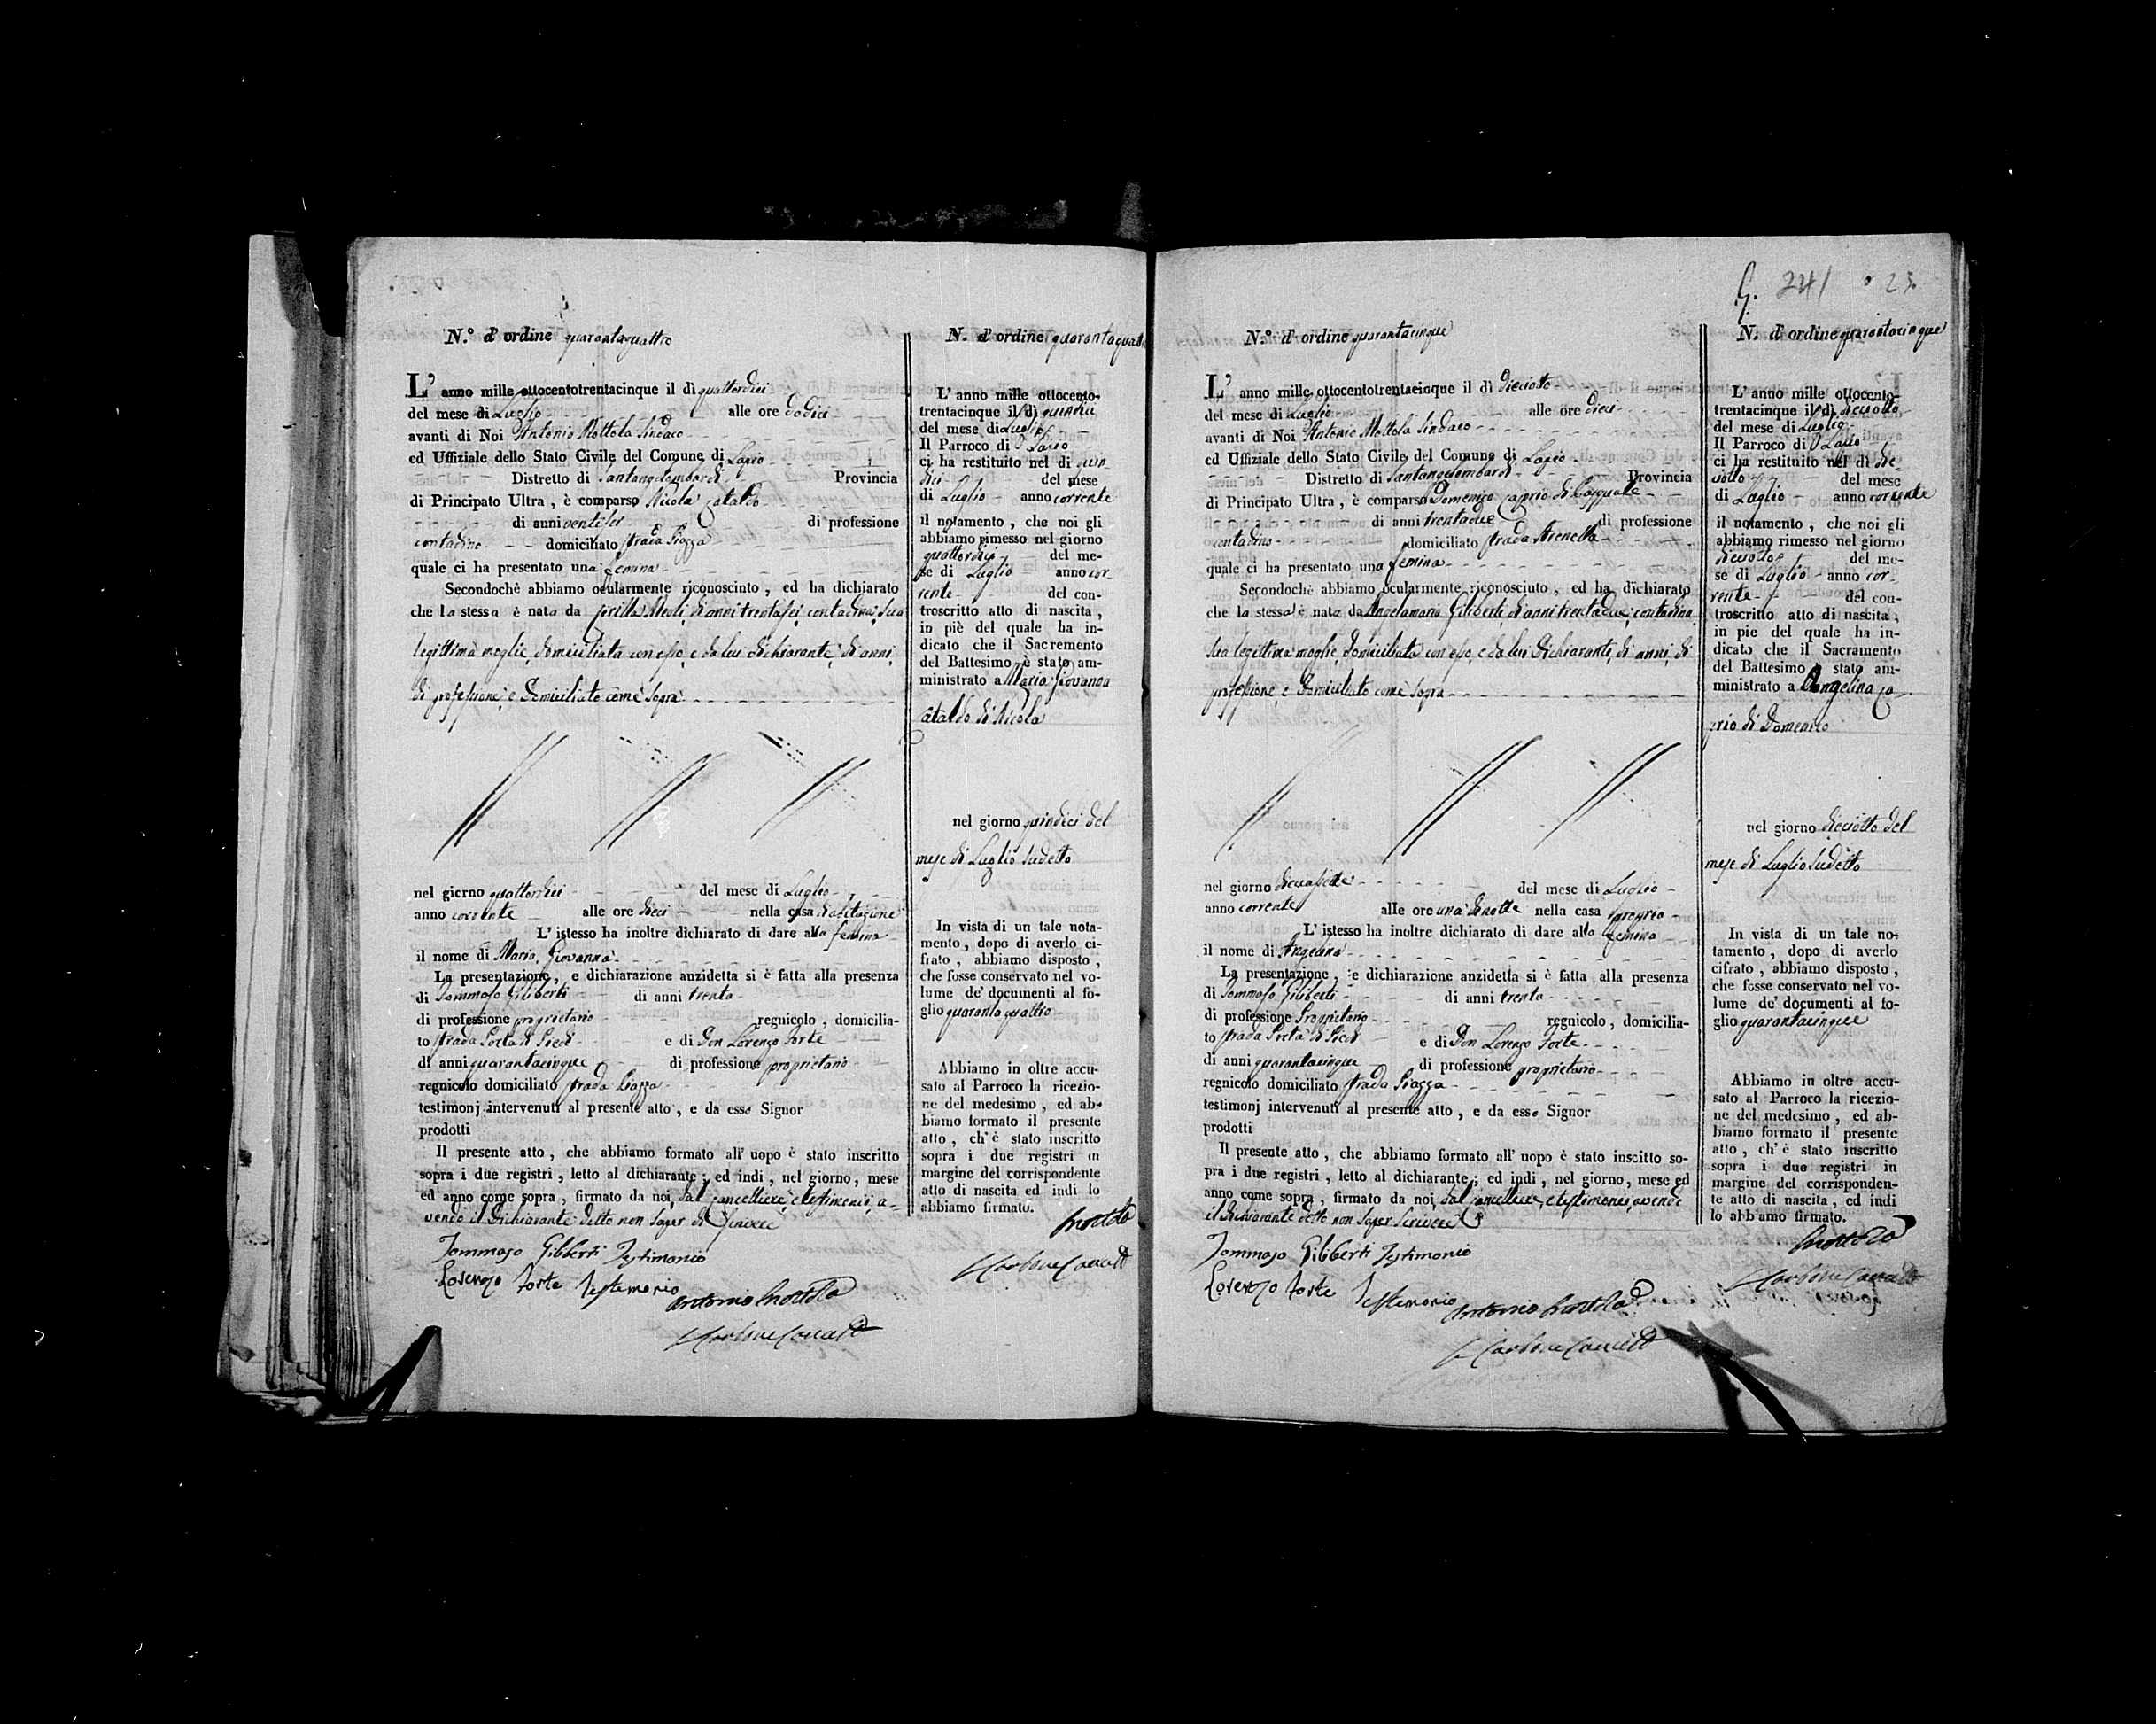 N.° d'ordine quarantaquattro
L' anno mille ottocentotrentacinque il dì quattordici
del mese di Luglio alle ore dodici
avanti di Noi Antonio Mottola Sindaco
ed Uffiziale dello Stato Civile del Comune di Lapio
Distretto di Santangelombardi Provincia
di Principato Ultra , è comparso Nicola Cataldo
di anni ventisei di professione
contadino domiciliato strada Piazza
quale ci ha presentato una femina
Secondochè abbiamo ocularmente riconosciuto , ed ha dichiarato
che la stessa è nata da di anni trentasei, contadina, sua
legittima moglie, domiciliata con esso, e da lui dichiarante, di anni,
di professione, e domiciliato come sopra
nel giorno quattordici del mese di Luglio
anno corrente alle ore dieci nella casa d'abitazione
L' istesso ha inoltre dichiarato di dare alla femina
il nome di Maria Giovanna
La presentazione , e dichiarazione anzidetta si è fatta alla presenza
di Tommaso Giliberti di anni trenta
di professione proprietario regnicolo , domicilia-
to strada Porta di Piedi e di Don Lorenzo Forte
di anni quarantacinque di professione proprietario
regnicolo domiciliato strada Piazza
testimonj intervenuti al presente atto , e da esso Signor
prodotti
Il presente atto , che abbiamo formato all' uopo è stato inscritto
sopra i due registri , letto al dichiarante ; ed indi , nel giorno, mese
ed anno come sopra , firmato da noi, dal Cancelliere, e testimonii, a-
vendo il dichiarante detto non saper di scrivere
Tommaso Giliberti Testimonio
Lorenzo Forte Testimonio
Antonio Mottola
N. d' ordine quarantaquat
L' anno mille ottocento-
trentacinque il dì quindici
del mese di Luglio
Il Parroco di Lapio
ci ha restituito nel di quin-
dici del mese
di Luglio anno corrente
il notamento , che noi gli
abbiamo rimesso nel giorno
quattordici del me-
se di Luglio anno cor-
rente del con-
troscritto atto di nascita ,
in piè del quale ha in-
dicato che il Sacremento
del Battesimo è stato am-
ministrato a Maria Giovanna
Cataldo di Nicola
nel giorno quindici del
mese di Luglio sudetto
In vista di un tale nota-
mento , dopo di averlo ci-
frato , abbiamo disposto ,
che fosse conservato nel vo-
lume de' documenti al fo-
glio quarantaquattro
Abbiamo in oltre accu-
sato al Parroco la ricezio-
ne del medesimo , ed ab-
biamo formato il presente
atto , ch' è stato inscritto
sopra i due registri in
margine del corrispondente
atto di nascita ed indi lo
abbiamo firmato.
Mottola
241 23
N.° d' ordine quarantacinque
L' anno mille ottocentotrentacinque il dì dieciotto
del mese di Luglio alle ore dieci
avanti di Noi Antonio Mottola Sindaco
ed Uffiziale dello Stato Civile del Comune di Lapio
Distretto di Santangelombardi Provincia
di Principato Ultra , è comparso Domenico Caprio di Pasquale
di anni trentadue di professione
contadino domiciliato strada Arenella
quale ci ha presentato una femina
Secondochè abbiamo ocularmente riconosciuto , ed ha dichiarato
che la stessa è nata da Angelamaria Giliberti, di anni trentadue, contadina
sua legittima moglie, domiciliata con esso, e da lui dichiarante, di anni, di
professione, e domiciliato come sopra
nel giorno diciassette del mese di Luglio
anno corrente alle ore una di notte nella casa propria
L' istesso ha inoltre dichiarato di dare alla femina
il nome di Angelina
La presentazione , e dichiarazione anzidetta si è fatta alla presenza
di Tommaso Giliberti di anni trenta
di professione Proprietario regnicolo , domicilia-
to strada Porta di Piedi e di Don Lorenzo Forte
di anni quarantacinque di professione proprietario
regnicolo domiciliato strada Piazza
testimonj intervenuti al presente atto , e da esso Signor
prodotti
Il presente atto , che abbiamo formato all' uopo è stato inscitto so-
pra i due registri , letto al dichiarante ; ed indi , nel giorno, mese ed
anno come sopra , firmato da noi, dal Cancelliere, e testimonii, avendo
il dichiarante detto non saper scrivere
Tommaso Giliberti Testimonio
Lorenzo Forte Testimonio
Antonio Mottola
N. d' ordine quarantacinque
L' anno mille ottocento-
trentacinque il dì dieciotto
del mese di Luglio
Il Parroco di Lapio
ci ha restituito nel dì die-
ciotto del mese
di Luglio anno corrente
il notamento , che noi gli
abbiamo rimesso nel giorno
dieciotto del me-
se di Luglio anno cor-
rente del con-
troscritto atto di nascita ,
in pie del quale ha in-
dicato che il Sacramento
del Battesimo è stato am-
ministrato a Angelina Ca-
prio di Domenico
nel giorno dieciotto del
mese di Luglio sudetto
In vista di un tale no-
tamento , dopo di averlo
cifrato , abbiamo disposto ,
che fosse conservato nel vo-
lume de' documenti al fo-
glio quarantacinque
Abbiamo in oltre accu-
sato al Parroco la ricezio-
ne del medesimo , ed ab-
biamo formato il presente
atto , ch' è stato inscritto
sopra i due registri in
margine del corrisponden-
te atto di nascita , ed indi
lo abbiamo firmato.
Mottola